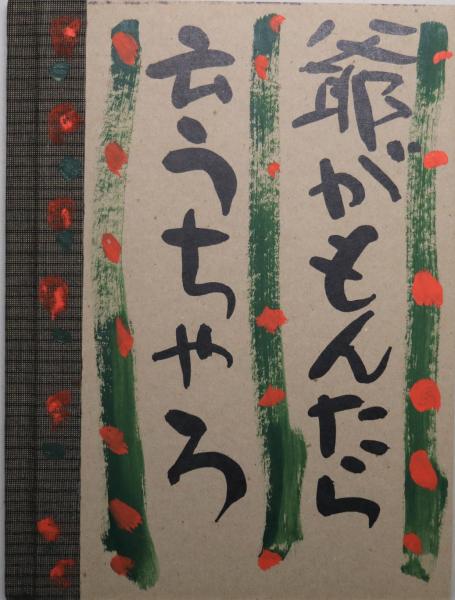 爺がもんたら
云うちゃろ